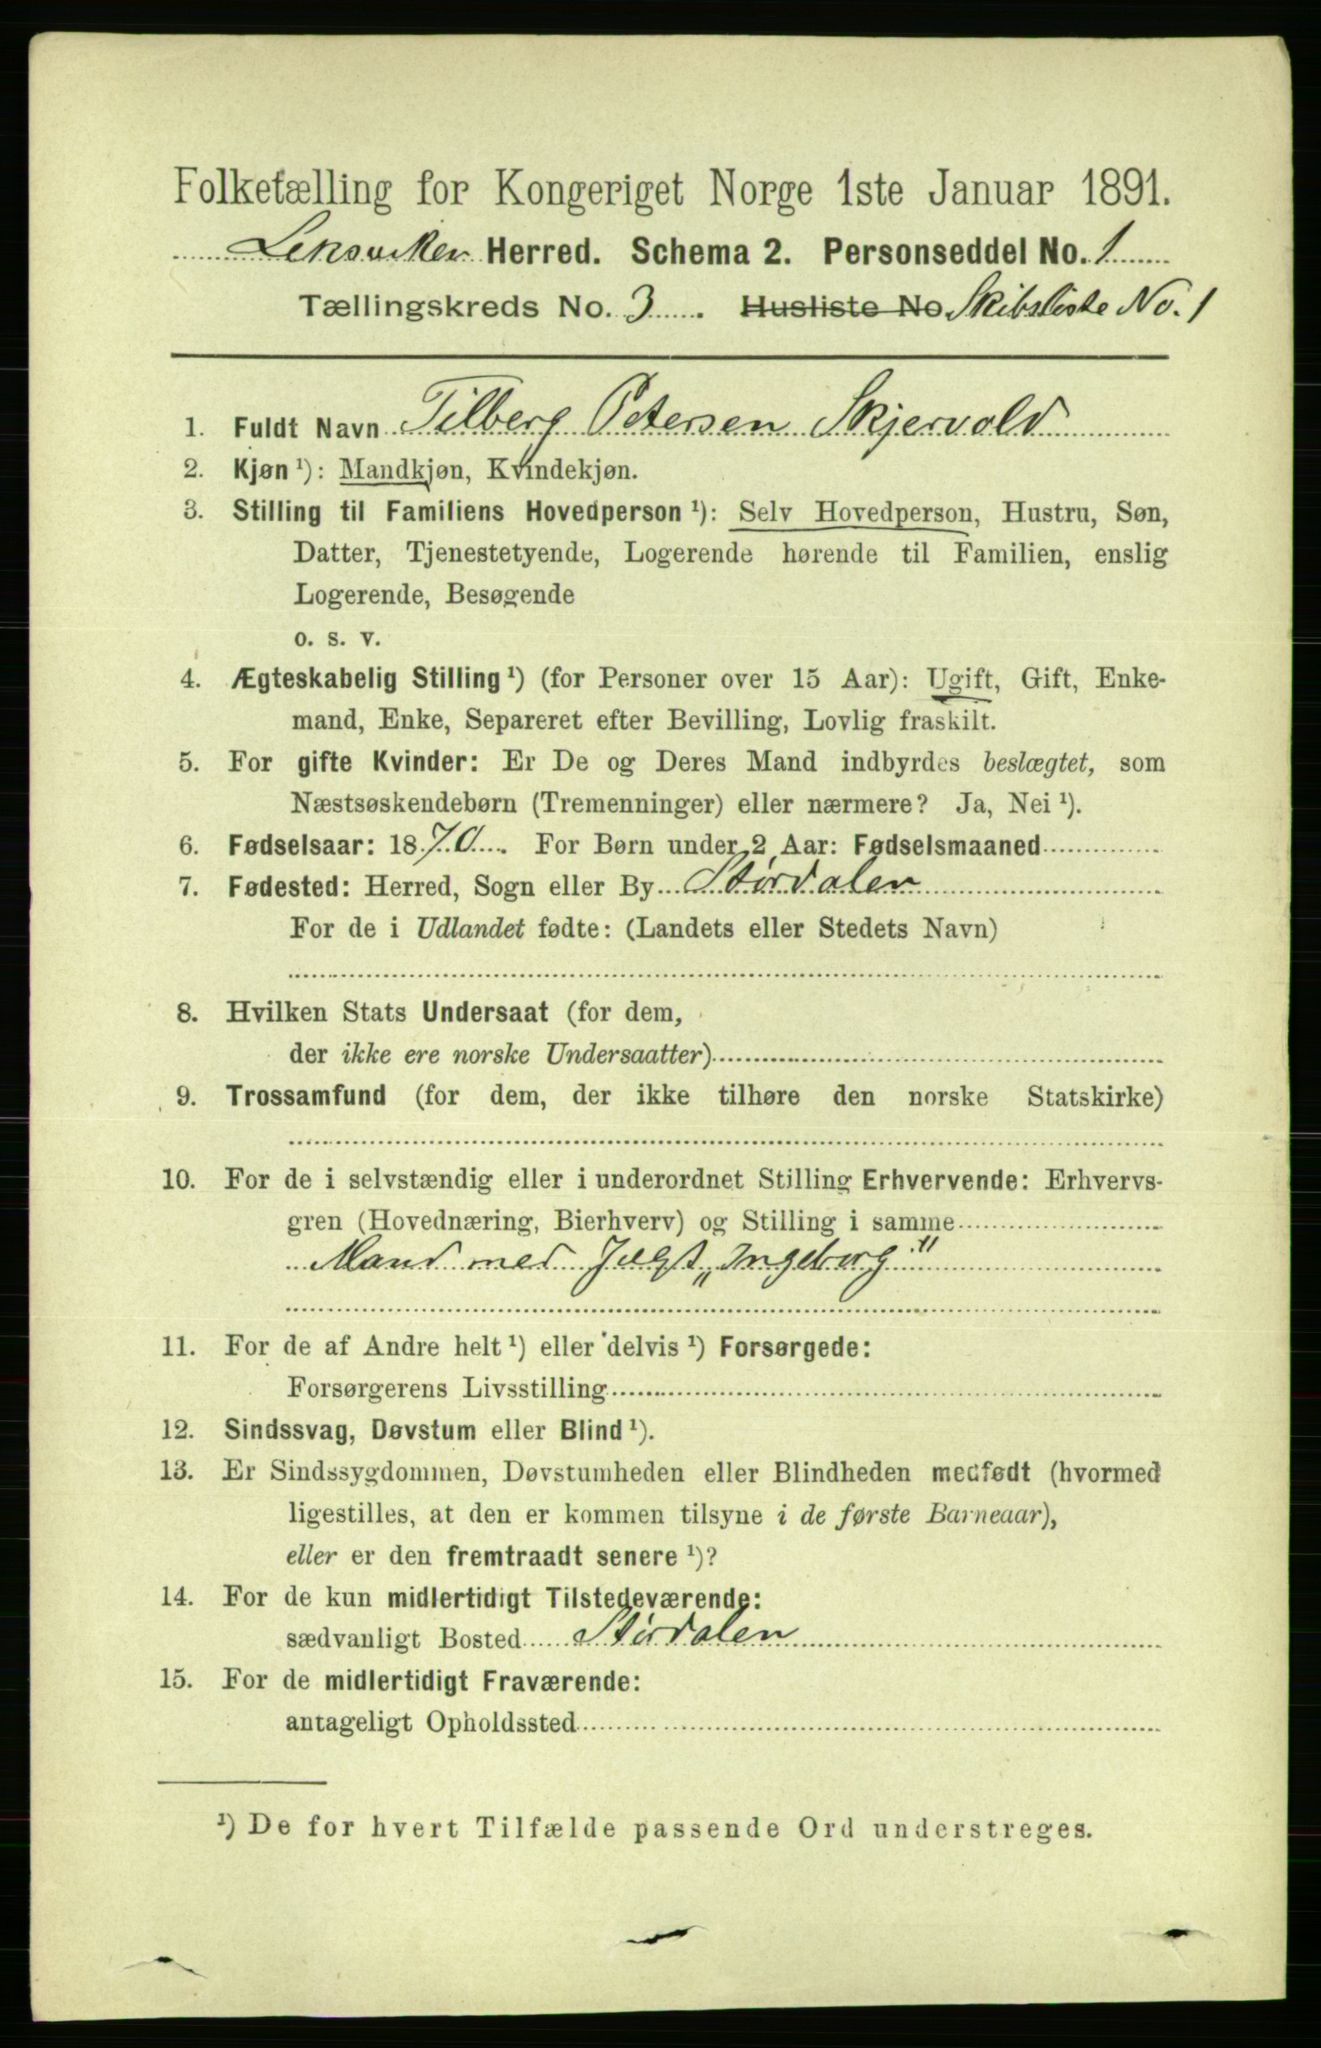 Folketælling for Kongeriget Norge 1ste Januar 1891.
Leksviken Herred. Schema 2. Personseddel No. 1
Tællingskreds No. 3. Husliste No Skibsliste No. 1
1. Fuldt Navn Tilberg Petersen Skjervold
2. Kjøn ¹): Mandkjøn, Kvindekjøn.
3. Stilling til Familiens Hovedperson ¹): Selv Hovedperson, Hustru, Søn,
Datter, Tjenestetyende, Logerende hørende til Familien, enslig
Logerende, Besøgende
o. s. v.
4. Ægteskabelig Stilling ¹) (for Personer over 15 Aar): Ugift, Gift, Enke-
mand, Enke, Separeret efter Bevilling, Lovlig fraskilt.
5. For gifte Kvinder: Er De og Deres Mand indbyrdes beslægtet, som
Næstsøskendebørn (Tremenninger) eller nærmere? Ja, Nei ¹).
6. Fødselsaar: 1870. For Børn under 2 Aar: Fødselsmaaned
7. Fødested: Herred, Sogn eller By Størdalen
For de i Udlandet fødte: (Landets eller Stedets Navn)
8. Hvilken Stats Undersaat (for dem,
der ikke ere norske Undersaatter)
9. Trossamfund (for dem, der ikke tilhøre den norske Statskirke)
10. For de i selvstændig eller i underordnet Stilling Erhvervende: Erhvervs-
gren (Hovednæring, Bierhverv) og Stilling i samme
Mand med Jægt „Ingeborg"
11. For de af Andre helt ¹) eller delvis ¹) Forsørgede:
Forsørgerens Livsstilling
12. Sindssvag, Døvstum eller Blind ¹).
13. Er Sindssygdommen, Døvstumheden eller Blindheden medfødt (hvormed
ligestilles, at den er kommen tilsyne i de første Barneaar),
eller er den fremtraadt senere ¹)?
14. For de kun midlertidigt Tilstedeværende:
sædvanligt Bosted Størdalen
15. For de midlertidigt Fraværende:
antageligt Opholdssted
¹) De for hvert Tilfælde passende Ord understreges.